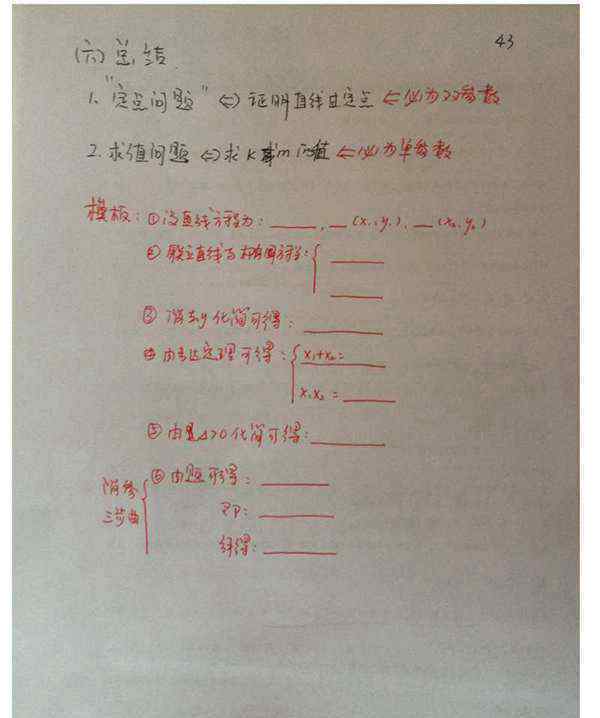 43
(六) 总结
1. "定点问题" ⇔ 证明直线过定点 ⇐ 必为双参数
2. 求值问题 ⇔ 求 k 或 m 的值 ⇐ 必为单参数
模板: ① 设直线方程为: ____, __(x₁,y₁), __(x₂,y₂)
② 联立直线与椭圆方程: { ____
____
③ 消去y化简可得: ____
④ 由韦达定理可得: { x₁+x₂= ____
x₁x₂ = ____
⑤ 由 Δ>0 化简可得: ____
消参三步曲 { ⑥ 由题可得: ____
即: ____
解得: ____